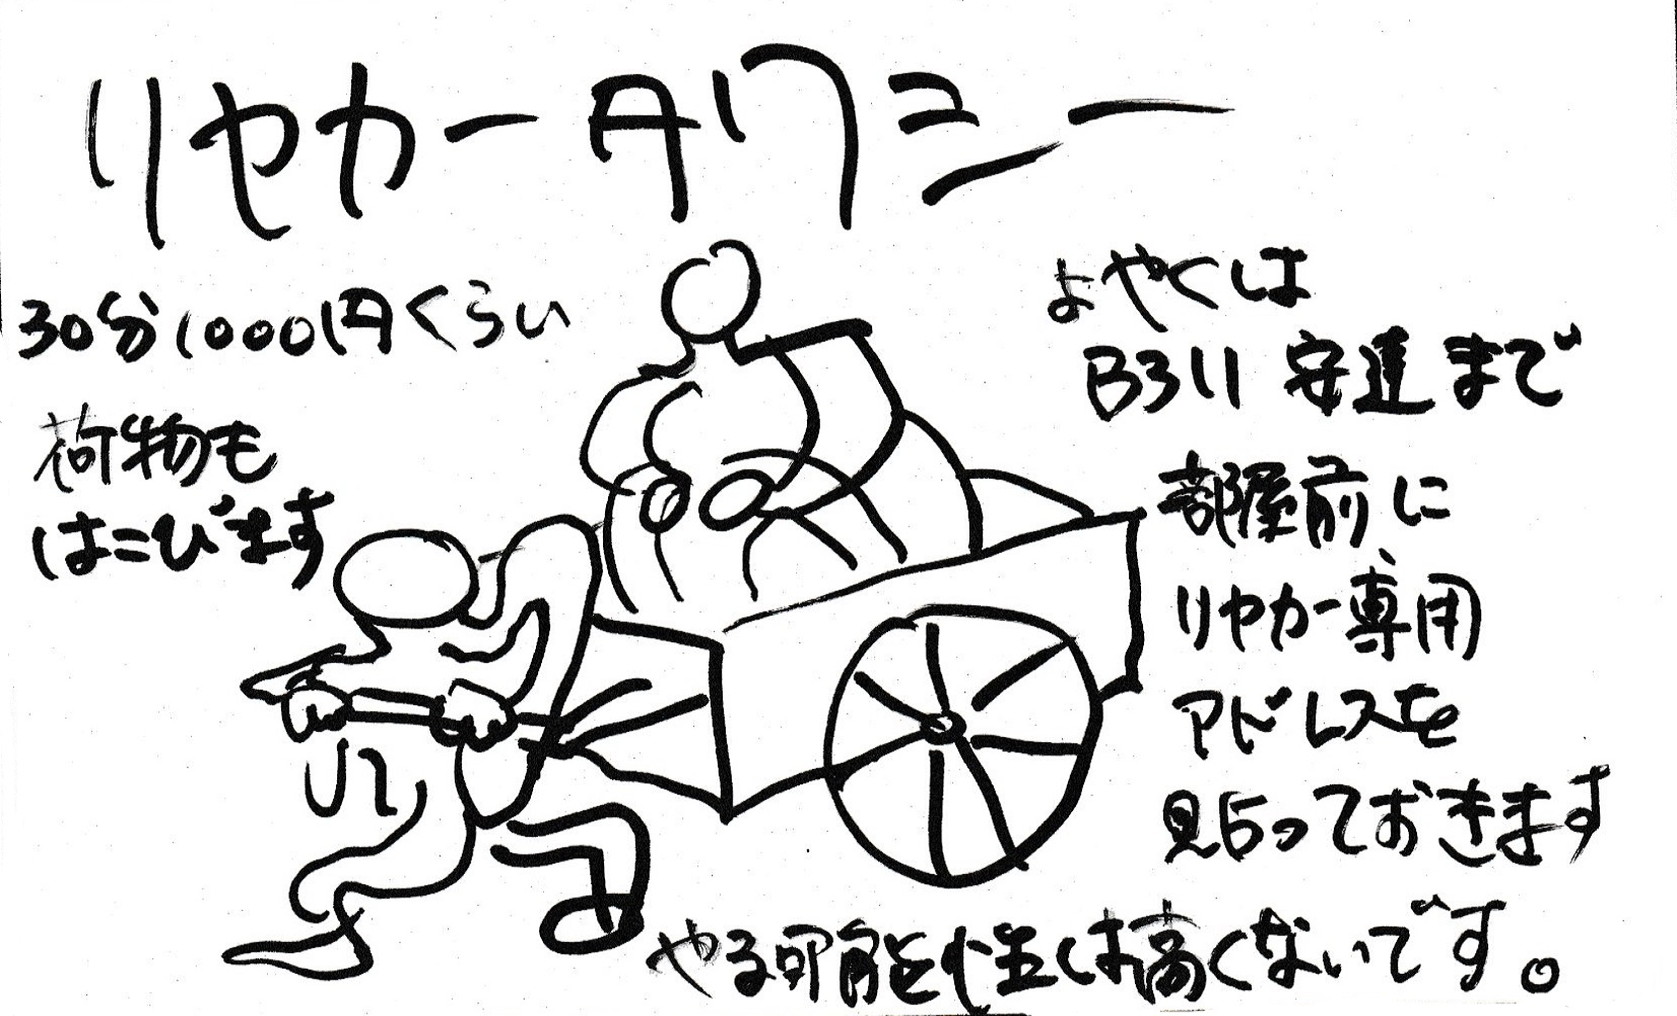 リヤカータクシー
30分1000円くらい
荷物も
はこびます
よやくは
B311 安達まで
部屋前に
リヤカー専用
アドレスを
貼っておきます
やる可能性は高くないです。